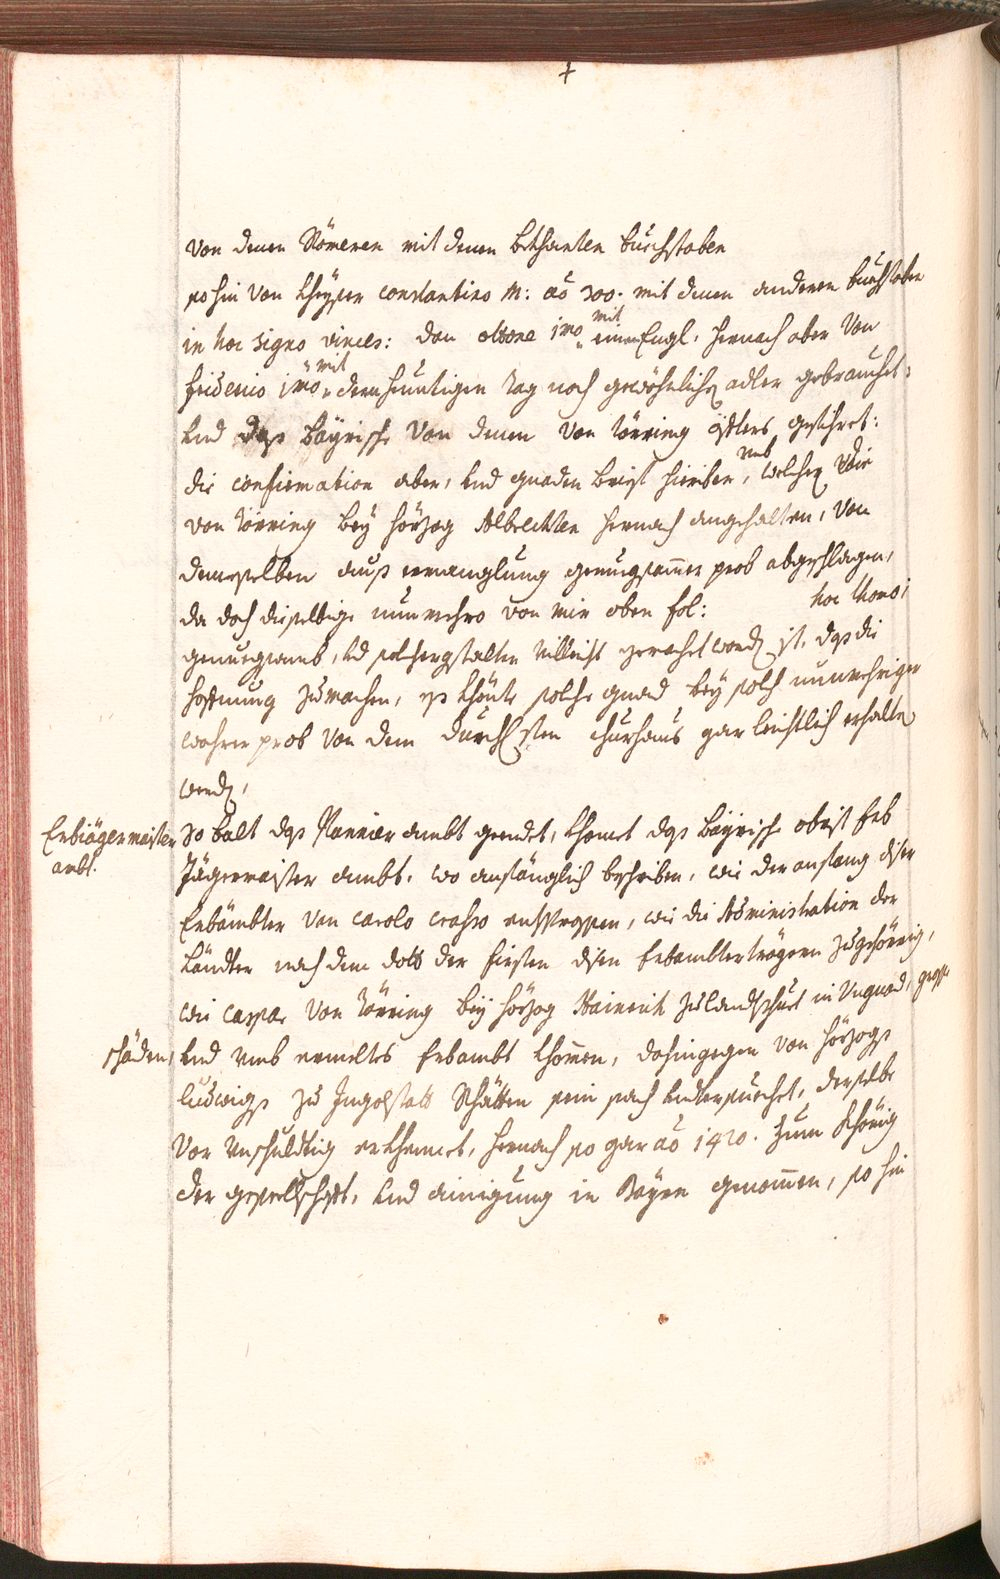 von denen Römeren mit denen bekhanten buechstaben
so hin von Kheyser constantino M: ao 300. mit denen anderen buechstaben
in hoc signo vinces: von ottone imo mit einem Engl, hernach aber von
friderico imo mit dem heuntigen tag noch gewöhnlichen adler gebrauchet:
und das bayrische von denen von törring öffters geführet:
die confirmation aber, und gnaden brief hieriber, umb welchen die
von törring bey hörzog Albrechten hernach angehalten, von
demselben auss ermanglung genuegsamer prob abgeschlagen,
da doch dieselbige nunmehro von mir oben fol: hoc thono
genuegsamb, und solchergstalten villeicht gemachet worden ist, dass die
hoffnung zumachen, es khönte solche gnad bey solch nunmehriger
wahrer prob von dem durchlsten churhaus gar leichtlich erhalten
werden,
Erbjägermaister ambt.
So balt das Pannier ambt geendet, khomet das bayrische obrist Erb
Jägermaister ambt, wo anfänglich beschriben, wie der anfang diser
Erbämbter von carolo crasso entsprossen, wie die Administration der
Ländter nach dem dott der firsten disen Erbambterträgern zugehörrig,
wie caspar von törring bey hörzog Hainrich zu landshuet in Ungnad, grosse
schäden, und umb ermeltes Erbambt khommen, dahingegen von hörzogs
ludwigs zu Ingolstatt Rhätten sein sach undtersuechet, derselbe
vor unschuldtig erkhennet, hernach so gar ao 1420. zum khönig
der gesellschafft, und ainigung in Bayrn genommen, so hin